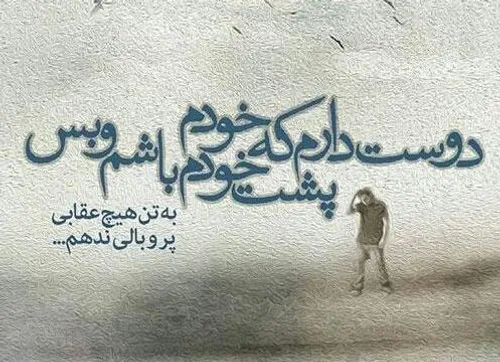 دوست دارم که خودم
پشت خودم باشم و بس
به تن هیچ عقابی
پر و بالی ندهم...